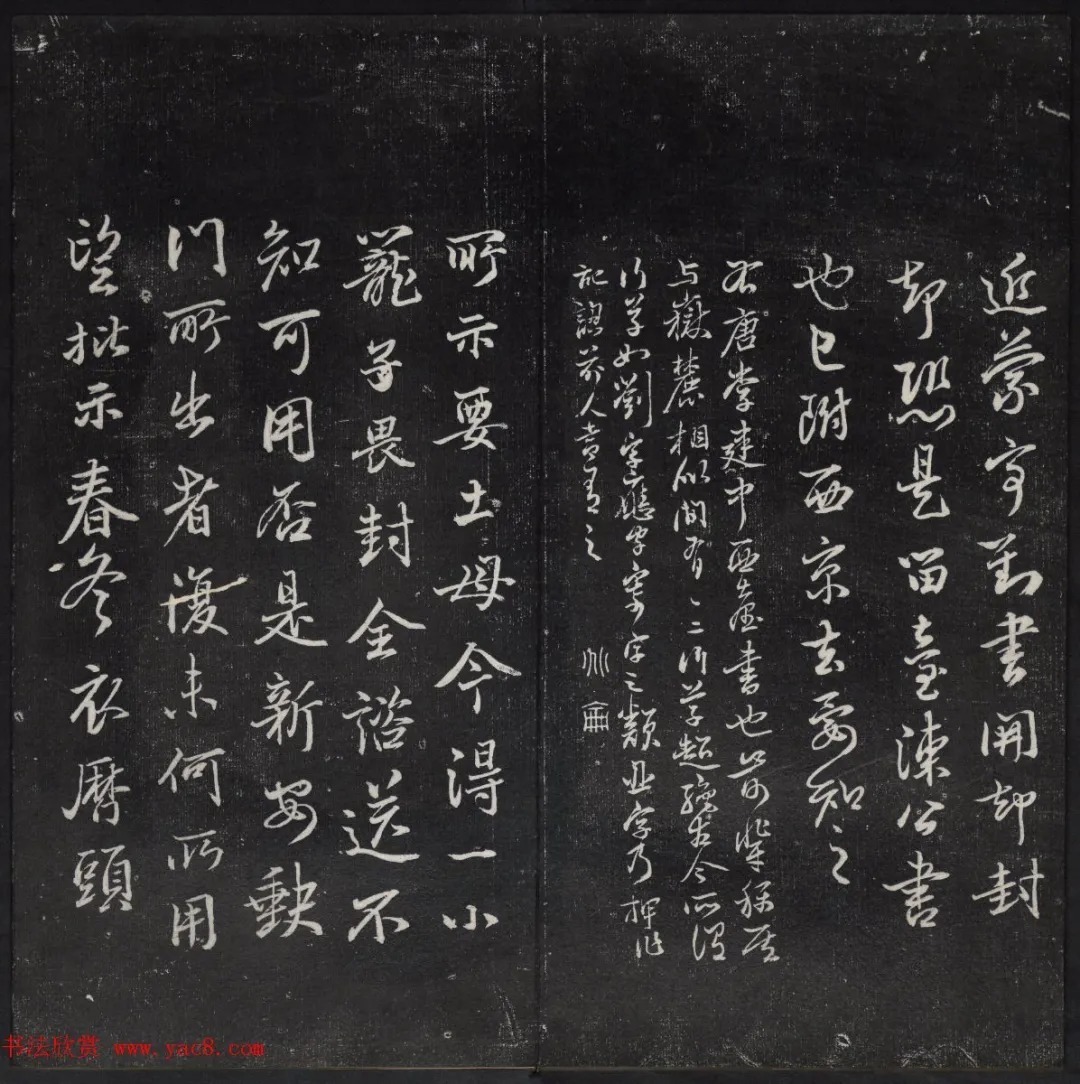 近蒙寄到書開却封
却恐是留臺陳公書
也已附西京去要知之
右唐李建中西臺書也
与嶽麓相似間有二行草超絶古今所謂
行草如劉字聽字字之類且字乃押非
記認前人書者之
所示要土母今得一小
籠子畏封全諮送不
知可用否是新安缺
門所出者復未何所用
望批示春冬衣曆頭
书法欣赏 www.yac8.com